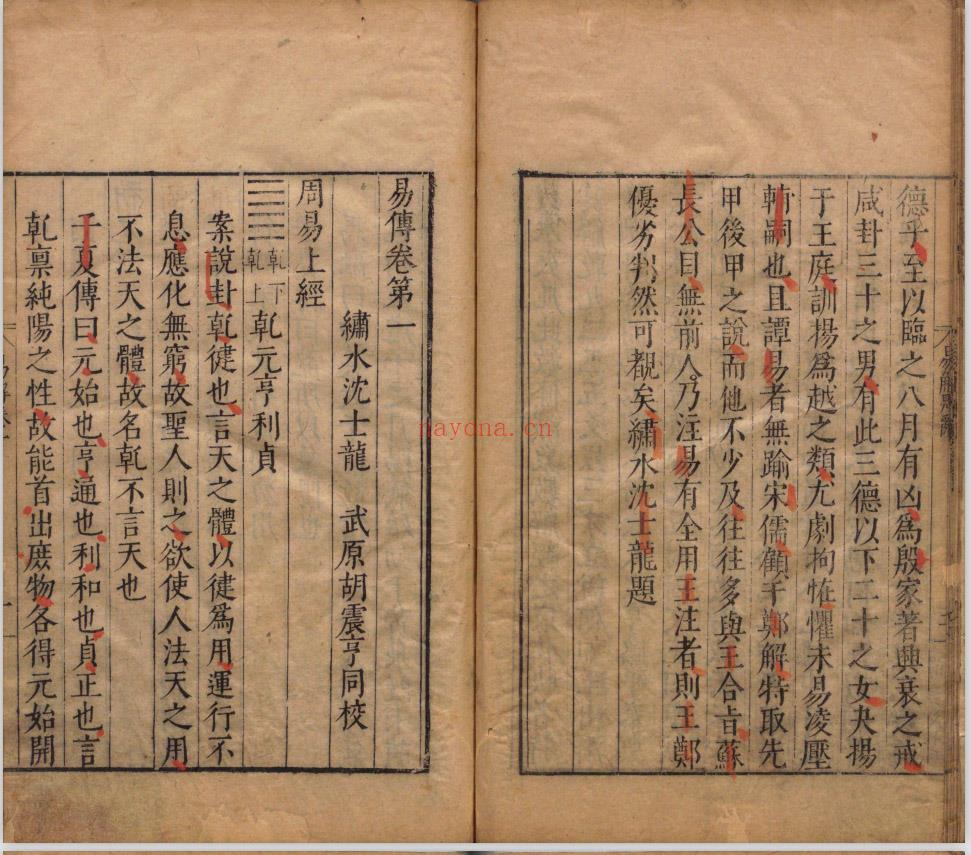 德乎至以臨之八月有凶為殷家著興衰之戒
咸卦三十之男有此三德以下二十之女夬揚
于王庭訓揚爲越之類尤劇拘恠懼未易凌壓
輔嗣也且譚易者無踰宋儒顧于鄭解特取先
甲後甲之說而他不少及往往多與王合旨蘇
長公目無前人乃注易有全用王注者則王鄭
優劣判然可觀矣繡水沈士龍題
易傳卷第一
繡水沈士龍 武原胡震亨同校
周易上經
乾下
乾上
乾元亨利貞
案說卦乾健也言天之體以健爲用運行不
息應化無窮故聖人則之欲使人法天之用
不法天之體故名乾不言天也
子夏傳曰元始也亨通也利和也貞正也言
乾稟純陽之性故能首出庶物各得元始開
nayona.cn